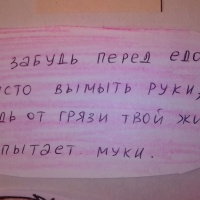 ЗАБУДЬ ПЕРЕД ЕДО
СТО ВЫМЫТЬ РУКИ,
ДЬ ОТ ГРЯЗИ ТВОЙ ЖИ
ПЫТАЕТ МУКИ.